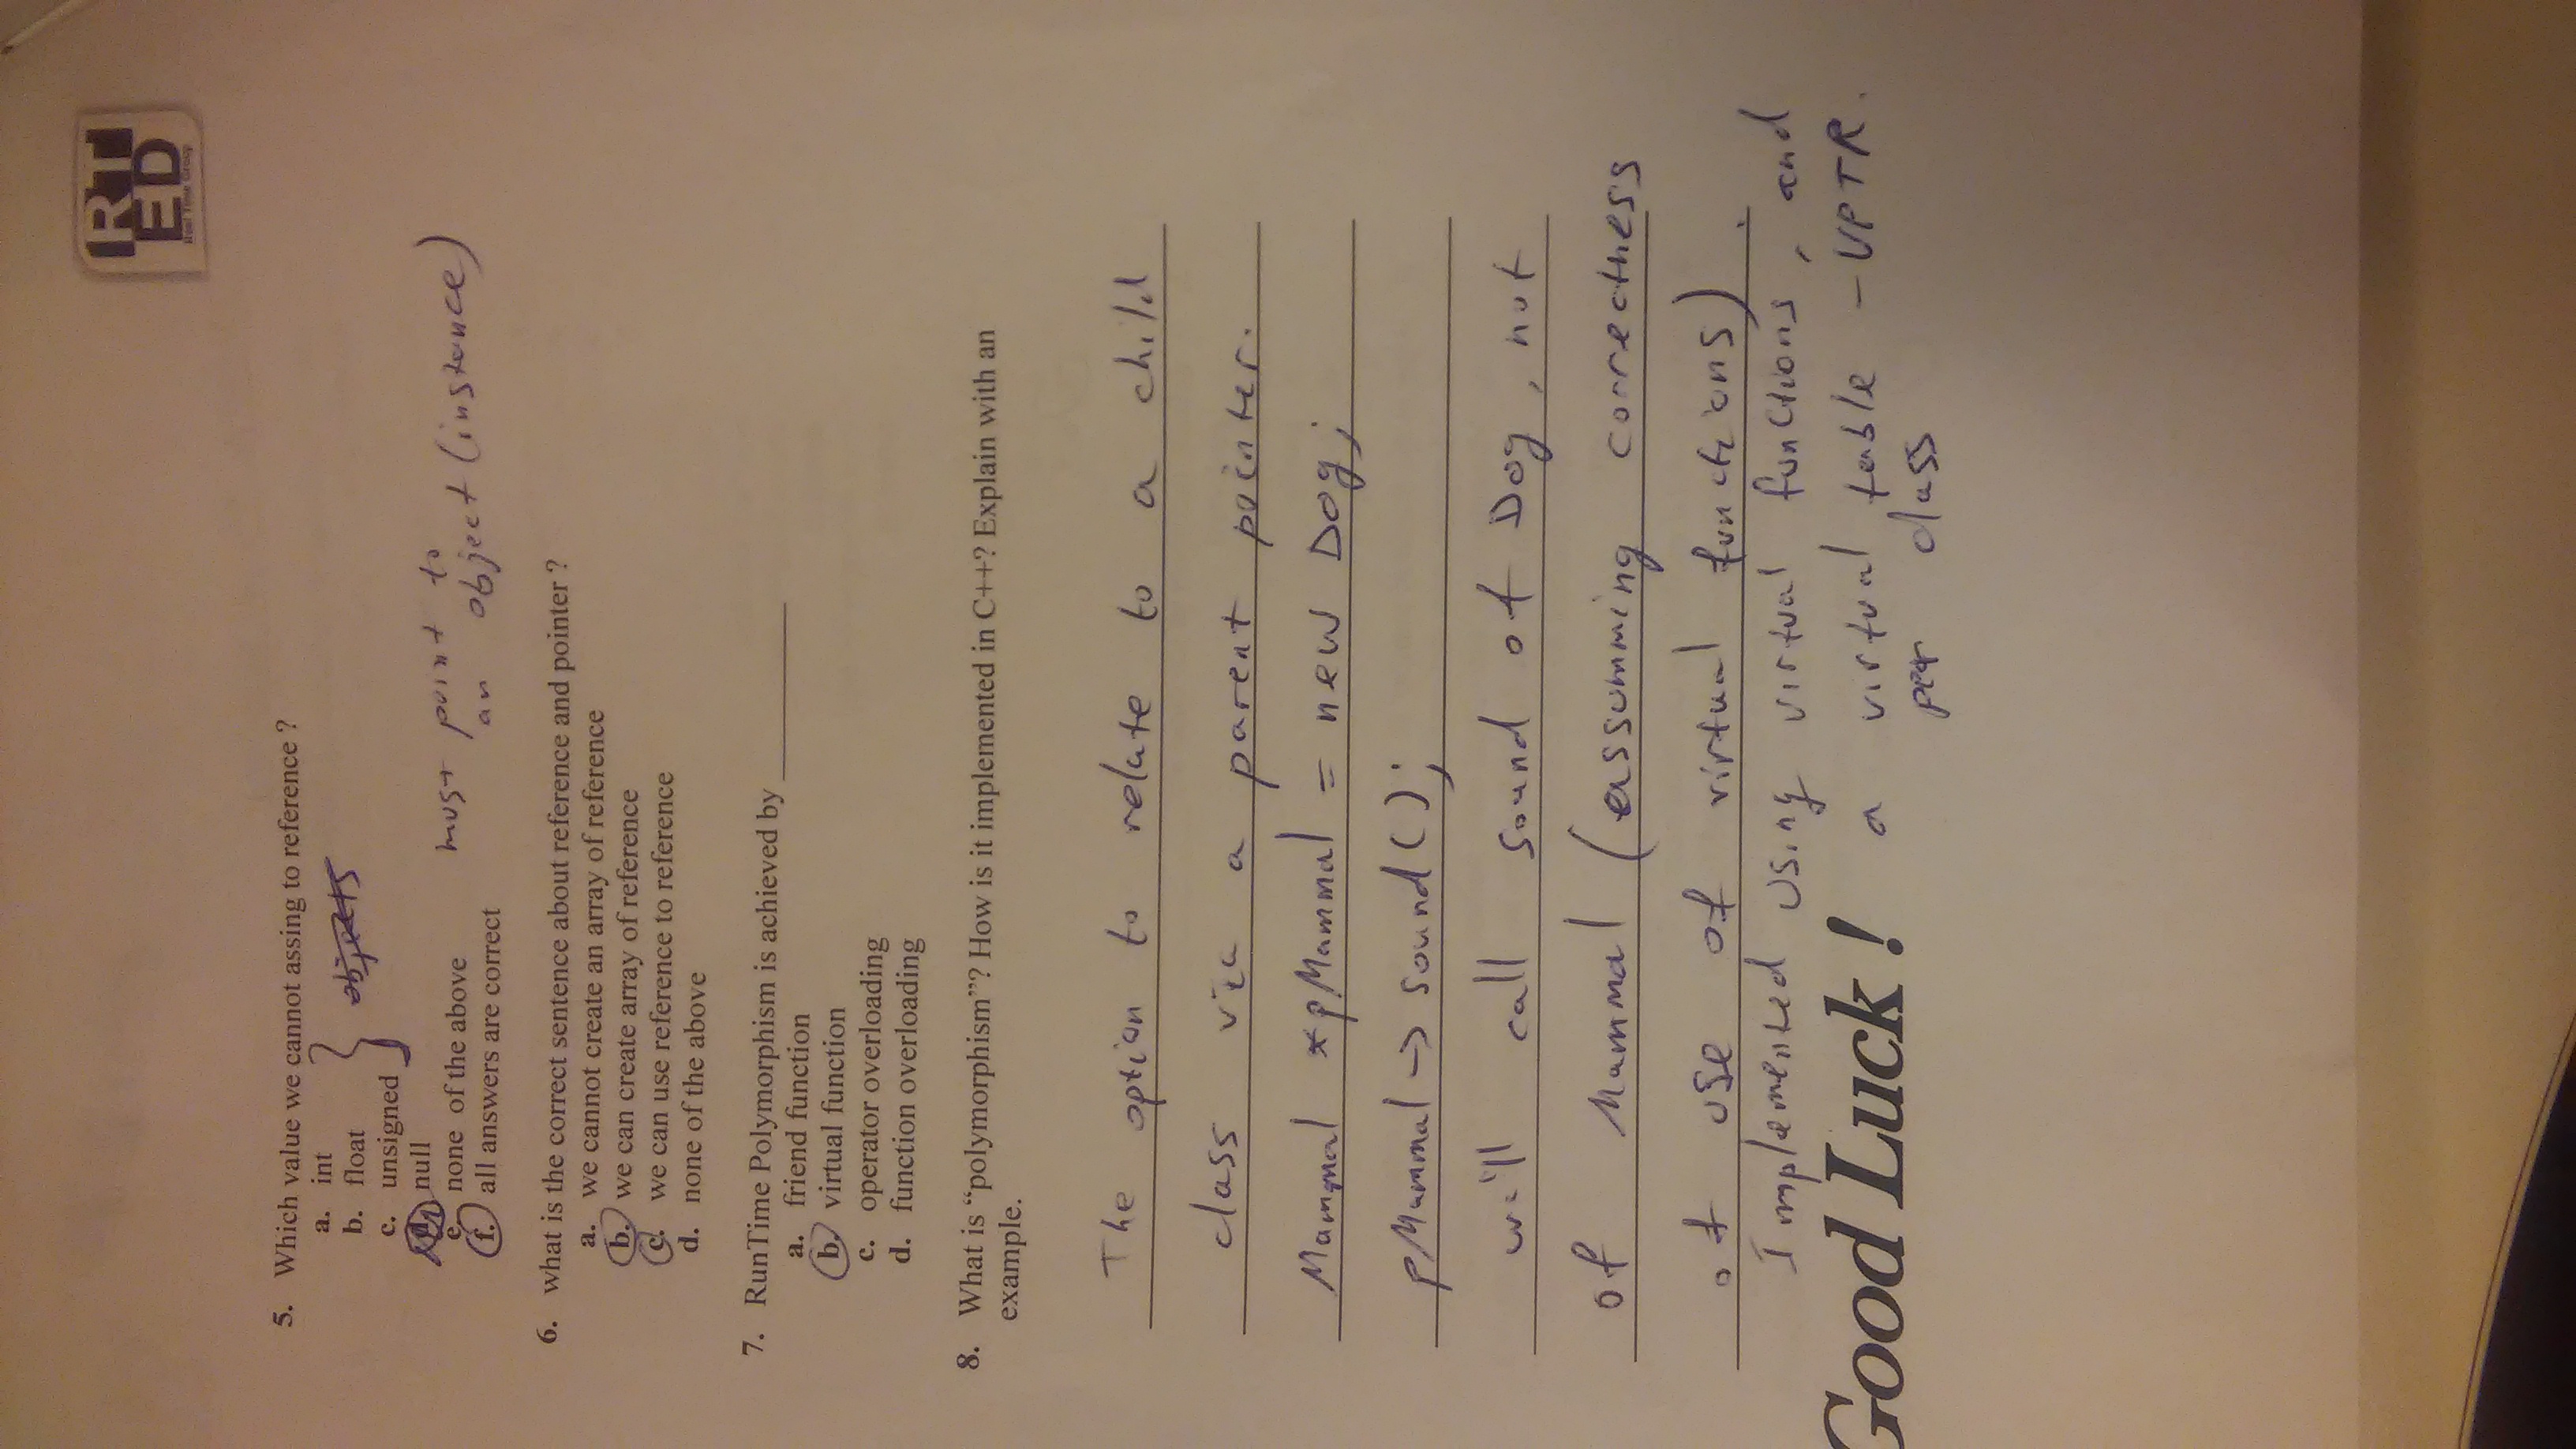 RT
ED
Real Time Group
5. Which value we cannot assing to reference ?
a. int
b. float
c. unsigned
objects
d. null
e. none of the above
must point to
an object (instance)
f. all answers are correct
6. what is the correct sentence about reference and pointer ?
a. we cannot create an array of reference
b. we can create array of reference
c. we can use reference to reference
d. none of the above
7. RunTime Polymorphism is achieved by __________
a. friend function
b. virtual function
c. operator overloading
d. function overloading
8. What is “polymorphism”? How is it implemented in C++? Explain with an
example.
The option to relate to a child
class via a parent pointer.
Mammal *pMammal = new Dog;
pMammal -> sound();
will call sound of Dog, not
of Mammal (assumming correctness
of use of virtual functions).
Implemented using virtual functions, and
a virtual table - VPTR.
per class
Good Luck !